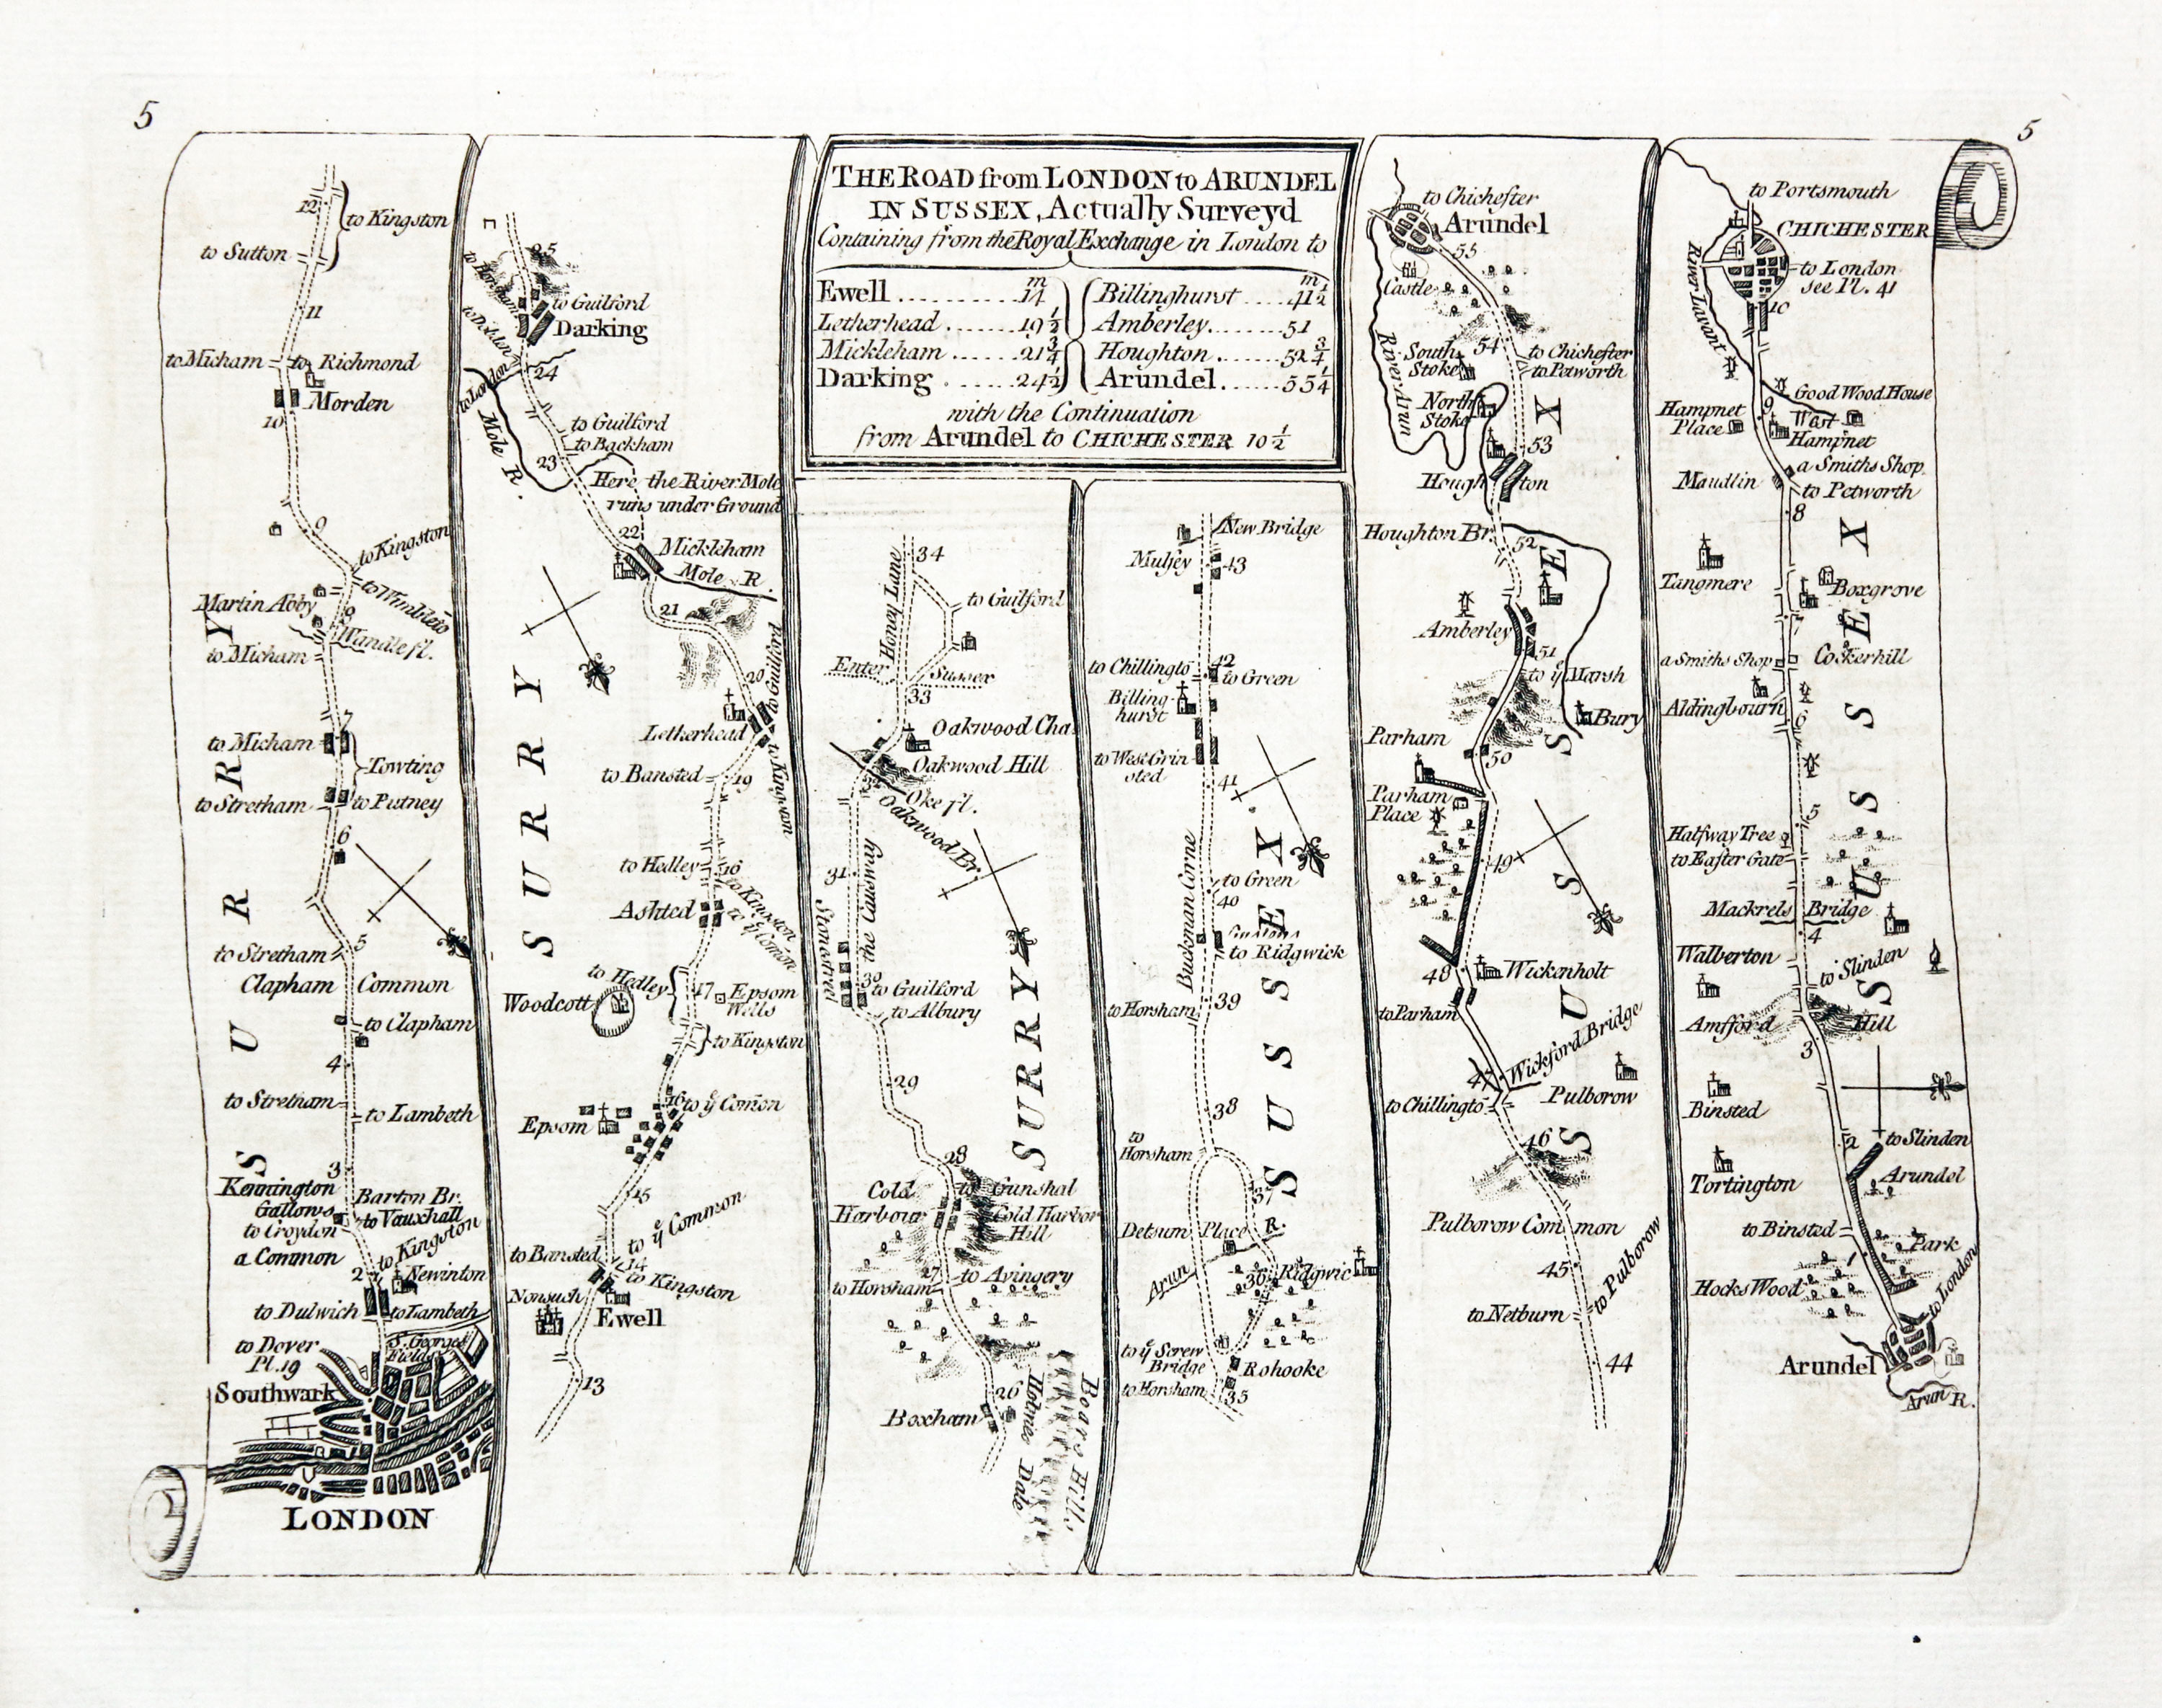 5
5
THE ROAD from LONDON to ARUNDEL
IN SUSSEX, Actually Survey'd
Containing from the Royal Exchange in London to
m
Ewell 14
Letherhead 19 1/2
Mickleham 21 3/4
Darking 24 1/2
m
Billinghurst 41 1/2
Amberley 51
Houghton 52 3/4
Arundel 55 1/4
with the Continuation
from Arundel to CHICHESTER 10 1/2
12
to Kingston
to Sutton
11
to Micham
to Richmond
Morden
10
9
to Kingston
to Wimbleto
Martin Abby
8
Wandle fl.
to Micham
7
to Micham
Towting
to Stretham
to Putney
6
5
to Stretham
Clapham Common
to Clapham
4
to Stretham
to Lambeth
3
Kennington
Gallows
Barton Br.
to Vauxhall
to Croydon
to Kingston
a Common
2
Newinton
to Dulwich
to Lambeth
to Dover
Pl. 19
St. Georges
Fields
Southwark
LONDON
SURRY
25
to Horsham
to Guilford
Darking
24
to London
Mole R.
to Guilford
to Backham
23
Here the River Mole
runs under Ground
22
Mickleham
Mole R.
21
20
to Guilford
Letherhead
to Kingston
to Bansted
19
to Hedley
to Kingston
to ye Comon
Ashted
to Hedley
17
Epsom
Wells
Woodcott
to Kingston
16
to ye Comon
Epsom
15
to ye Common
to Bansted
14
to Kingston
Nonsuch
Ewell
13
SURRY
34
Honey Lane
to Guilford
Enter Sussex
33
Oakwood Cha.
Oakwood Hill
32
Oke fl.
Oakwood Br.
31
the Causway
Stonestreet
30
to Guilford
to Albury
29
28
Cold
Harbour
to Gunshal
Cold Harbor
Hill
27
to Horsham
to Avingery
26
Boxham
Holmes Dale
Boare Hills
SURRY
New Bridge
Mulsey
43
to Chillingto
42
to Green
Billing-
hurst
to West Grin
sted
41
Buckman Corne
to Green
40
to Ridgwick
39
to Horsham
38
to
Horsham
37
Detsum Place
Arun R.
36
Ridgwic
to ye Screw
Bridge
Rohooke
to Horsham
35
SUSSEX
to Chichester
Arundel
55
Castle
River Arun
South
Stoke
54
to Chichester
to Petworth
North
Stoke
53
Houghton
Houghton Br.
52
Amberley
51
to ye Marsh
Bury
Parham
50
Parham
Place
49
48
Wickenholt
to Parham
47
Wickford Bridge
Pulborow
to Chillingto
46
Pulborow Common
45
to Pulborow
to Netburn
44
SUSSEX
to Portsmouth
CHICHESTER
River Lavant
to London
see Pl. 41
10
Good Wood House
9
Hampnet
Place
West
Hampnet
a Smiths Shop
Maudlin
to Petworth
8
Tangmere
Boxgrove
7
a Smiths Shop
Cockerhill
Aldingbourn
6
5
Halfway Tree
to Easter Gate
Mackrels Bridge
4
Walberton
to Slinden
Amfford Hill
3
Binsted
2
to Slinden
Tortington
Arundel
Park
to Binsted
1
Hocks Wood
to London
Arundel
Arun R.
SUSSEX